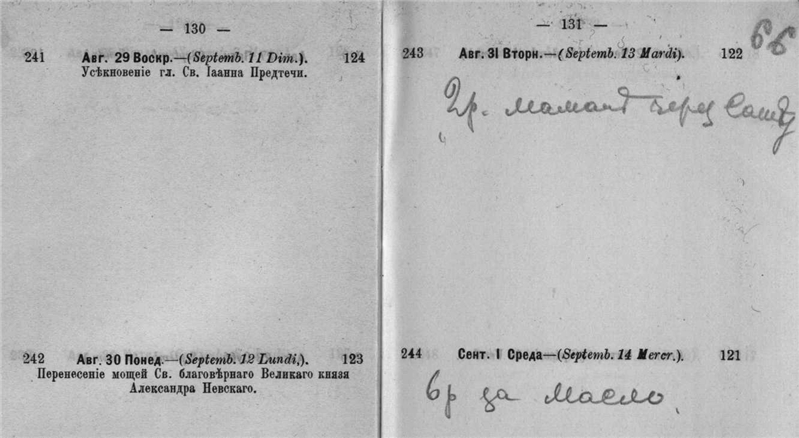 — 130 —
241 Авг. 29 Воскр.—(Septemb. 11 Dim.). 124
Усѣкновеніе гл. Св. Іаанна Предтечи.
242 Авг. 30 Понед.—(Septemb. 12 Lundi,). 123
Перенесеніе мощей Св. благовѣрнаго Великаго князя
Александра Невскаго.
— 131 —
66
243 Авг. 31 Вторн.—(Septemb. 13 Mardi). 122
2р. через Сашу
244 Сент. 1 Среда—(Septemb. 14 Mercr.). 121
6р за масло